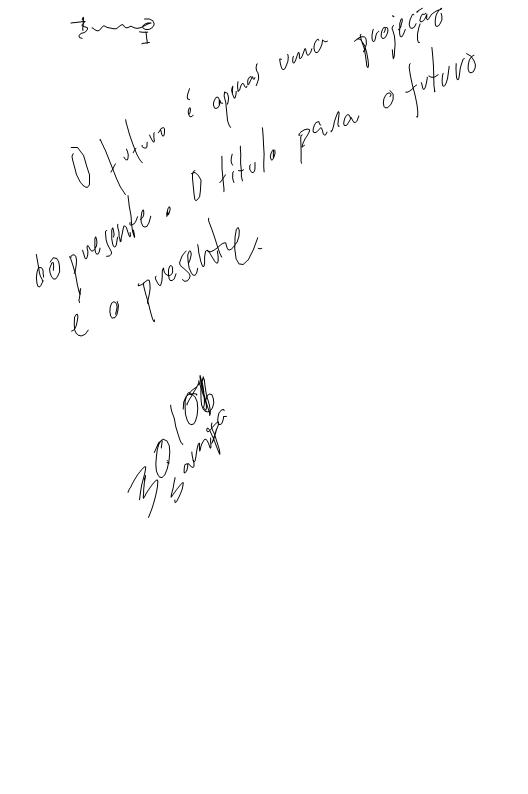 O futuro é apenas uma projeção
do presente. O título para o futuro
é o presente.
30/06
Sampa